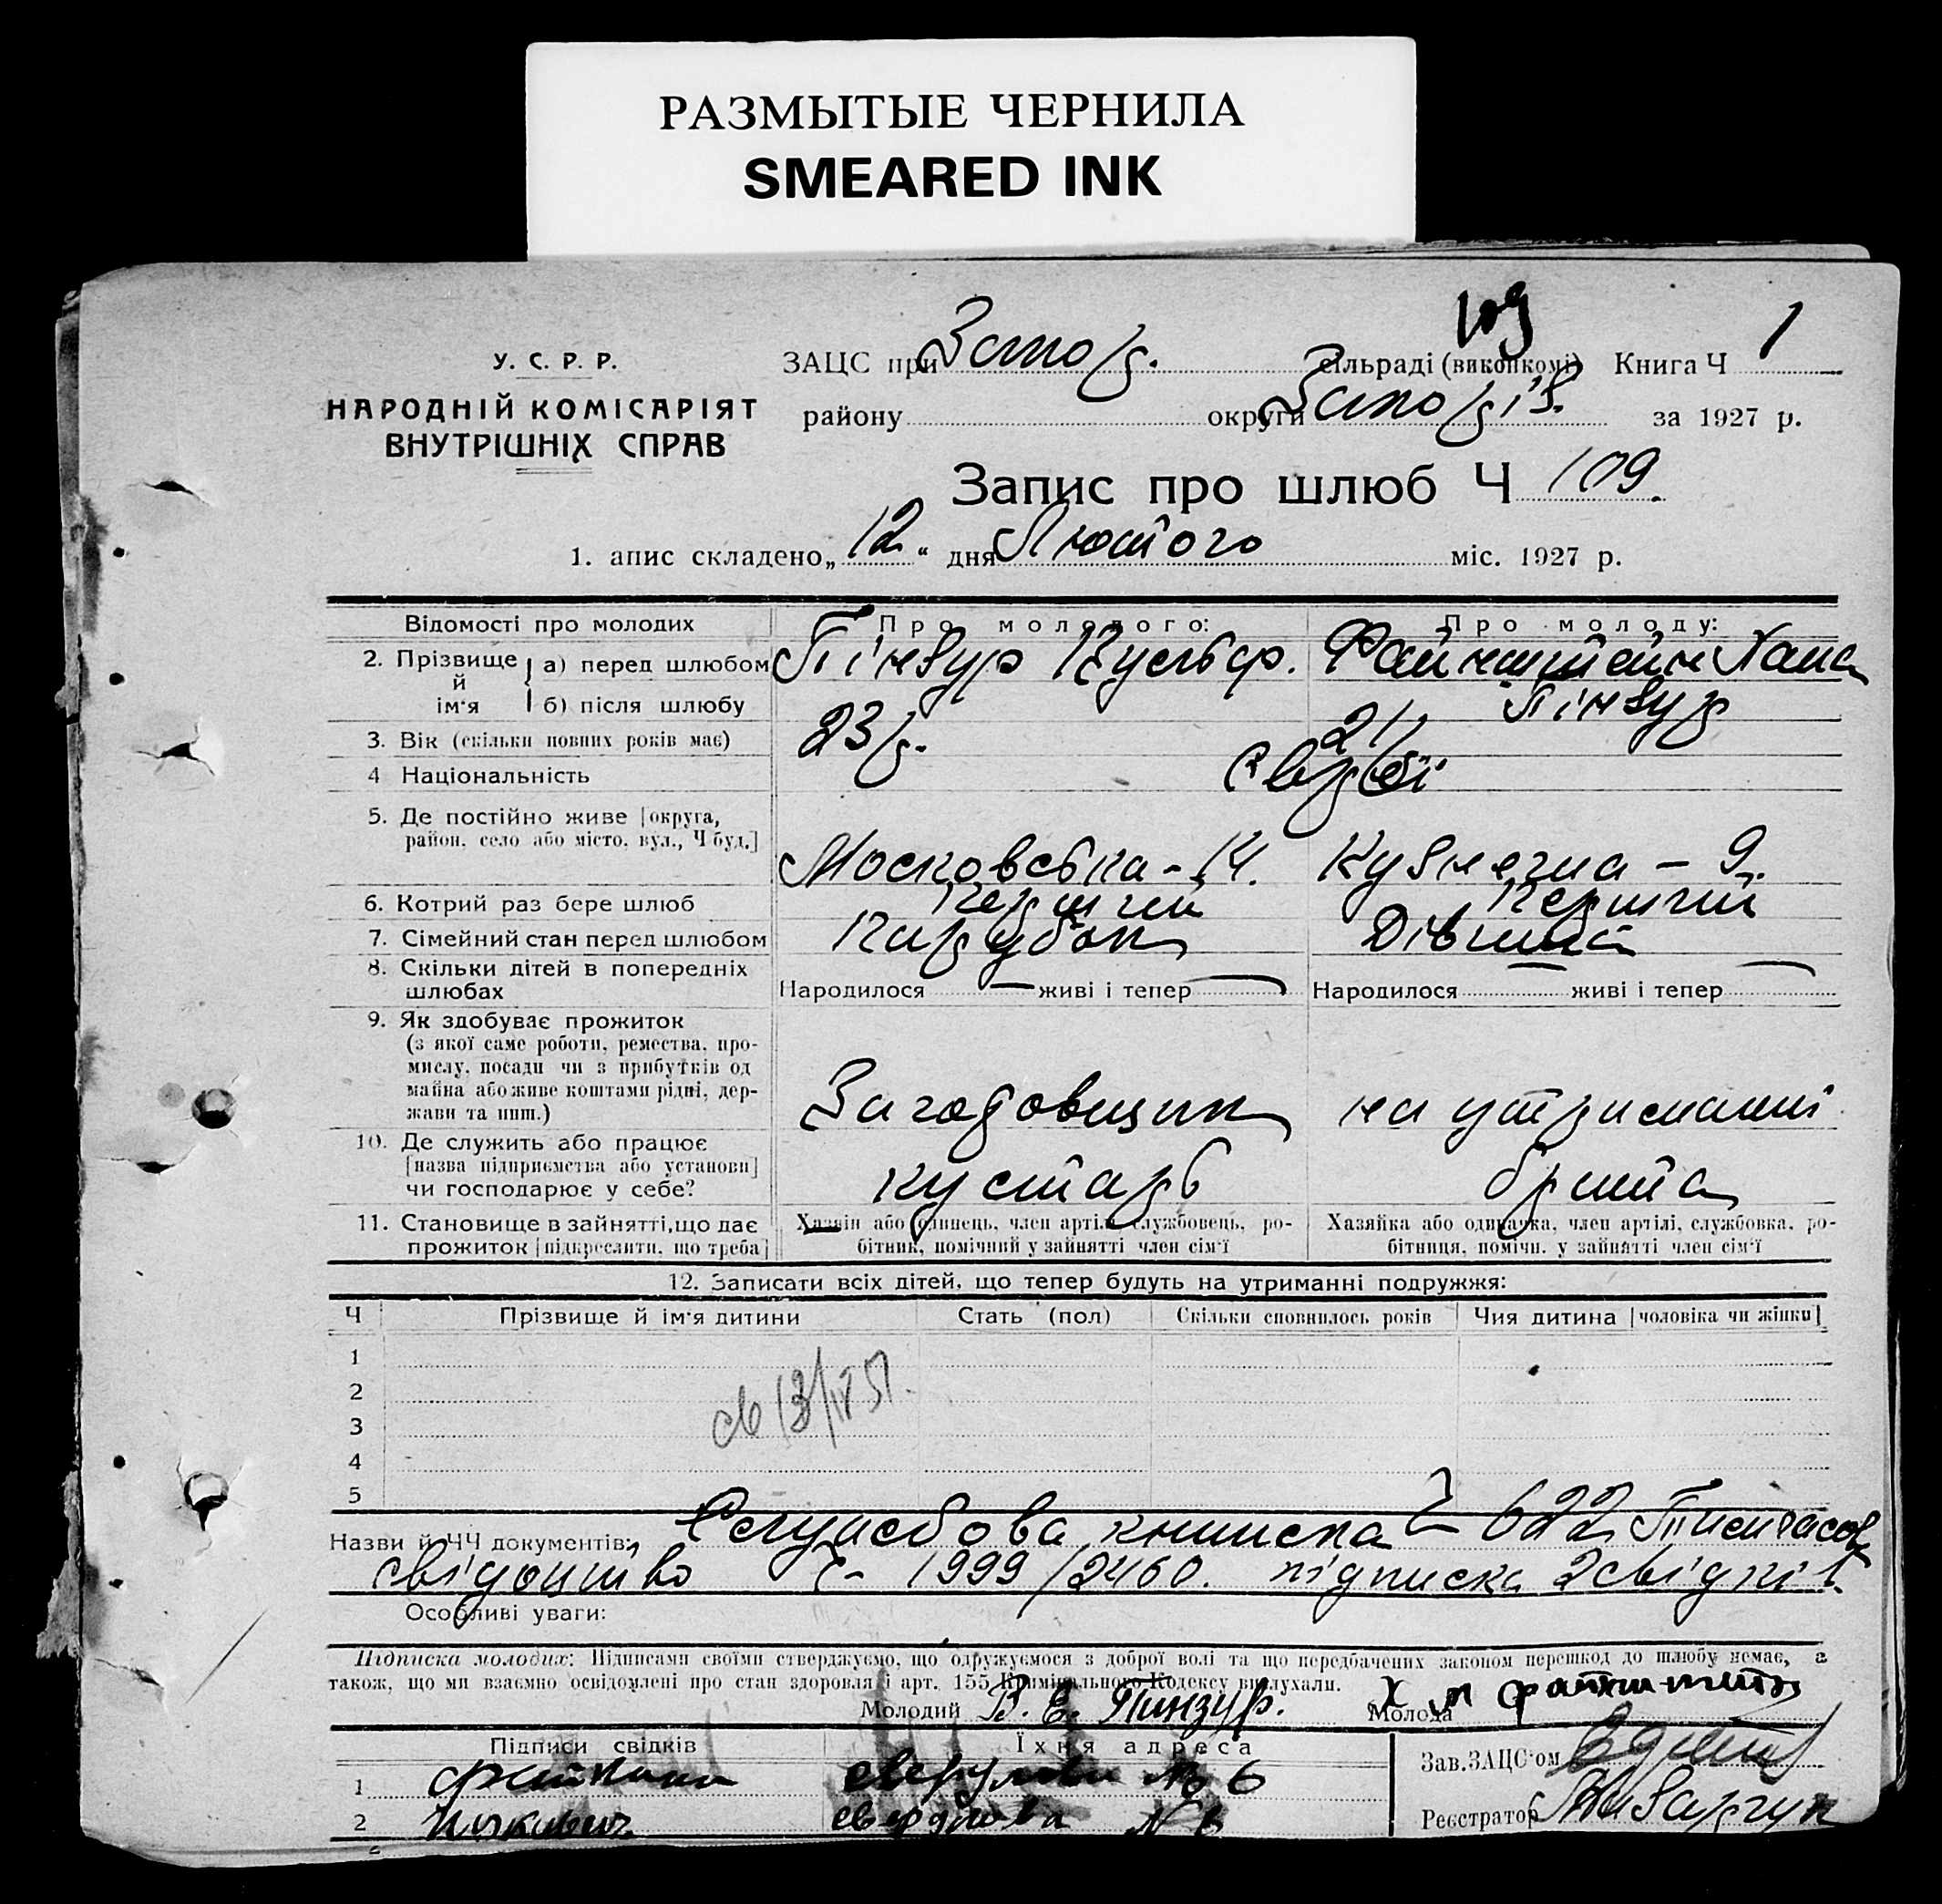 РАЗМЫТЫЕ ЧЕРНИЛА
SMEARED INK
109
У. С. Р. Р.
НАРОДНІЙ КОМІСАРІЯТ
ВНУТРІШНІХ СПРАВ
ЗАЦС при Запор. сільраді (виконкомі) Книга Ч 1
району округи Запоріз. за 1927 р.
Запис про шлюб Ч 109.
1. апис складено „12“ дня Лютого міс. 1927 р.
Відомості про молодих Про молодого: Про молоду:
2. Прізвище й ім'я а) перед шлюбом Пінзур Файнштейн Хана
б) після шлюбу Пінзур
3. Вік (скільки повних років має) 23 р. 21
4 Національність Євреї
5. Де постійно живе [округа,
район, село або місто, вул., Ч буд.] Московська - 14. Кузнечна - 9.
6. Котрий раз бере шлюб Перший Перший
7. Сімейний стан перед шлюбом Парубок Дівчина
8. Скільки дітей в попередніх
шлюбах Народилося — живі і тепер — Народилося — живі і тепер —
9. Як здобуває прожиток
(з якої саме роботи, ремества, про-
мислу, посади чи з прибутків од
майна або живе коштами рідні, дер-
жави та инш.) Заготовщик на утриманні
10. Де служить або працює
[назва підприємства або установи]
чи господарює у себе? кустарь брата
11. Становище в зайнятті, що дає
прожиток [підкреслити, що треба]
Хазяїн або одинець, член артілі, службовець, ро-
бітник, помічний у зайнятті член сім'ї
Хазяйка або одиначка, член артілі, службовка, ро-
бітниця, помічн. у зайнятті член сім'ї
12. Записати всіх дітей, що тепер будуть на утриманні подружжя:
Ч Прізвище й ім'я дитини Стать (пол) Скільки сповнилось років Чия дитина [чоловіка чи жінки]
1
2
3
4
5
Назви й ЧЧ документів: Служебова книжка Ч 622
свідоцтво Ч- 1999/2460. підписка 2 свідків.
Особливі уваги:
Підписка молодих: Підписами своїми стверджуємо, що одружуємося з доброї волі та що передбачених законом перешкод до шлюбу немає, а
також, що ми взаємно освідомлені про стан здоровля і арт. 155 Кримінального Кодексу вислухали.
Молодий В. Е. Пинзур. Молода
Підписи свідків Їхня адреса Зав. ЗАЦС'ом
1 № 6
2 свердлова № 6 Реєстратор